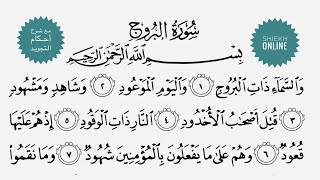 مع شرح
أحكام
التجويد
سُورَةُ الْبُرُوجِ
SHIEKH
ONLINE
بِسْمِ اللَّهِ الرَّحْمَٰنِ الرَّحِيمِ
وَالسَّمَاءِ ذَاتِ الْبُرُوجِ ١ وَالْيَوْمِ الْمَوْعُودِ ٢ وَشَاهِدٍ وَمَشْهُودٍ
٣ قُتِلَ أَصْحَابُ الْأُخْدُودِ ٤ النَّارِ ذَاتِ الْوَقُودِ ٥ إِذْ هُمْ عَلَيْهَا
قُعُودٌ ٦ وَهُمْ عَلَىٰ مَا يَفْعَلُونَ بِالْمُؤْمِنِينَ شُهُودٌ ٧ وَمَا نَقَمُوا